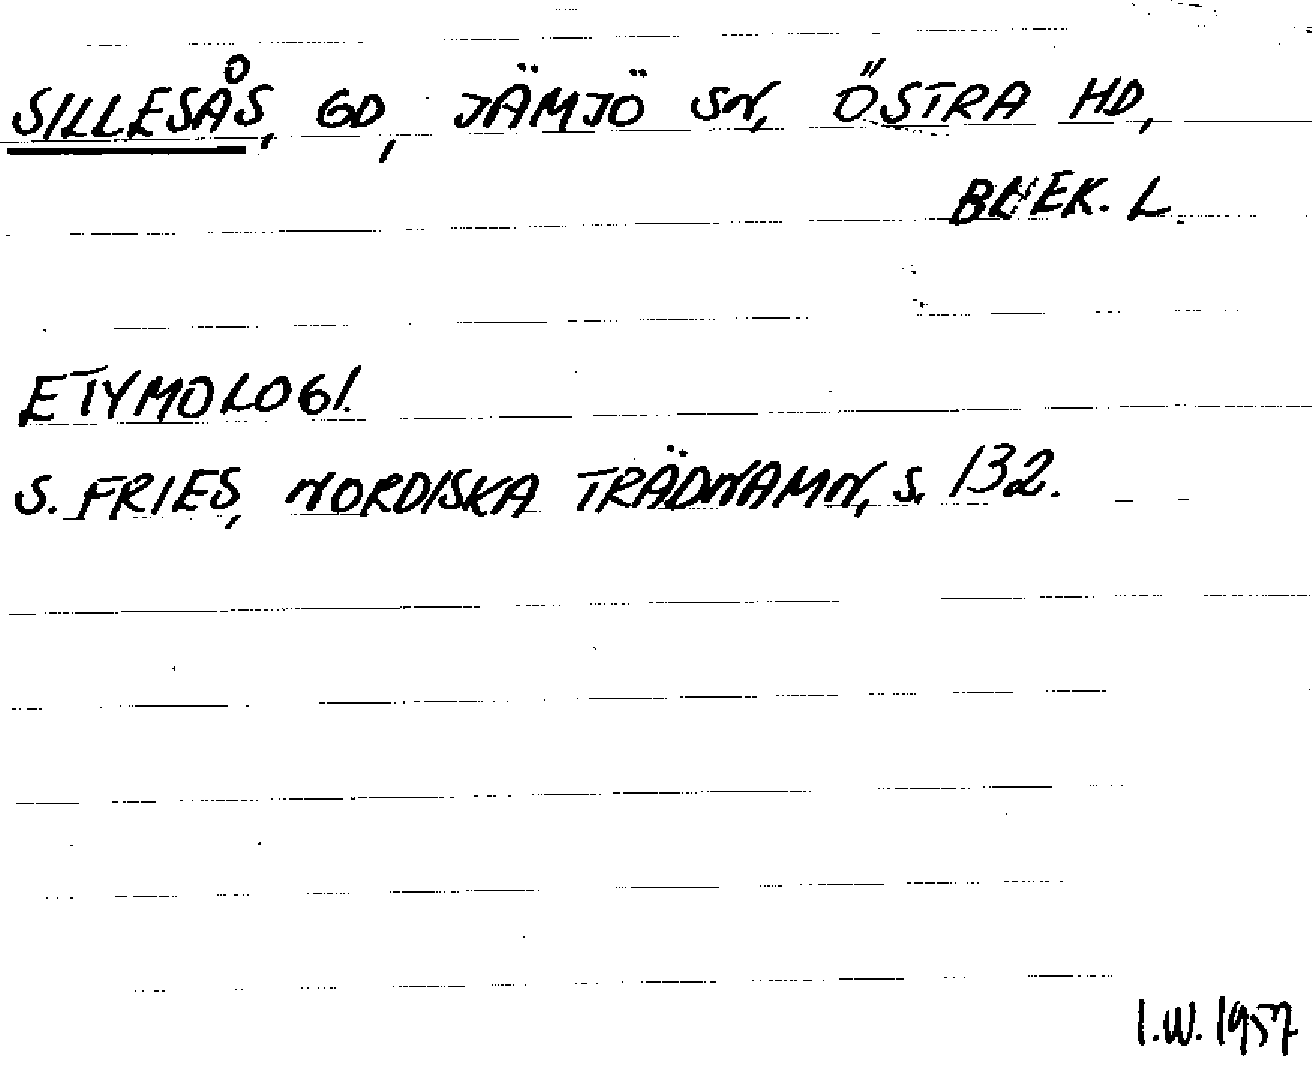 SILLESÅS, GD, JÄMJÖ SN, ÖSTRA HD,
BLEK. L.
ETYMOLOGI.
S. FRIES, NORDISKA TRÄDNAMN, S. 132.
I.W. 1957